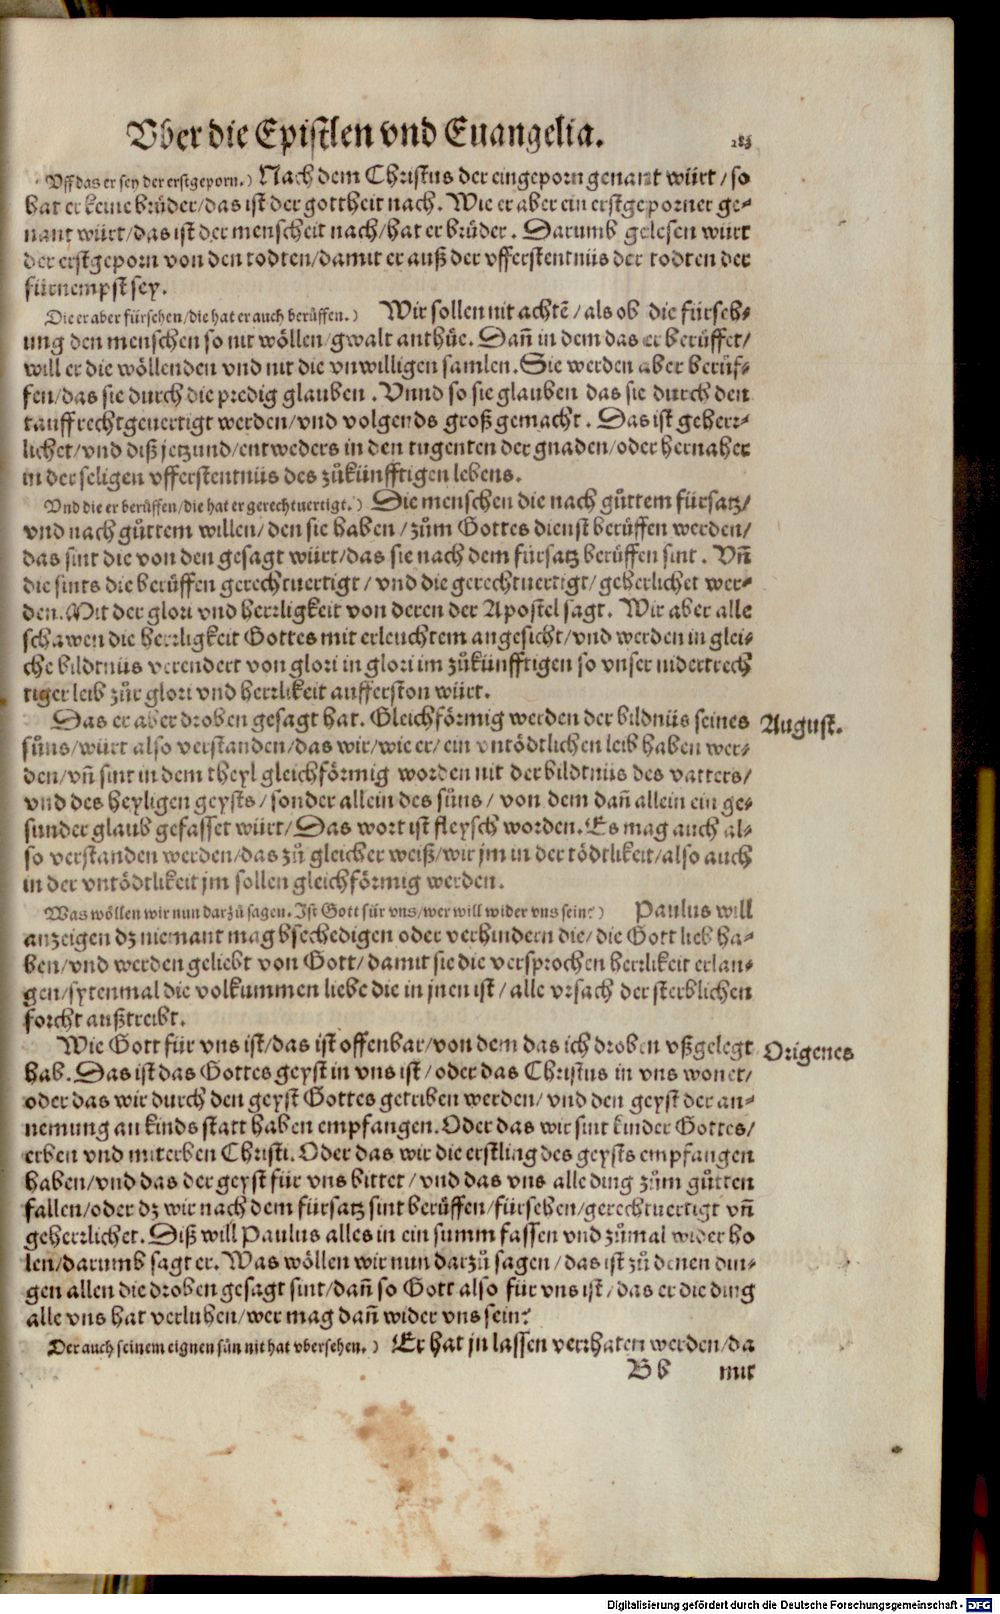 Vber die Epistlen vnd Euangelia.
Vff das er sey der erstgeporn.) Nach dem Christus der eingeporn genant würt / so
hat er keine brüder/das ist der gottheit nach. Wie er aber ein erstgeporner ge-
nant würt/das ist der menscheit nach/hat er brüder. Darumb gelesen würt
der erstgeporn von den todten/damit er auß der vfferstentnüs der todten der
fürnempst sey.
Die er aber fürsehen/die hat er auch berüffen.) Wir sollen nit achtē/als ob die fürseh-
ung den menschen so nit wöllen/gwalt anthüe. Dañ in dem das er berüffet/
will er die wöllenden vnd nit die vnwilligen samlen. Sie werden aber berüf-
fen/das sie durch die predig glauben. Vnnd so sie glauben das sie durch den
tauff rechtgeuertigt werden/vnd volgends groß gemacht. Das ist geherr-
lichet/vnd diß jetzund/entweders in den tugenten der gnaden/oder hernaher
in der seligen vfferstentnüs des zůkünfftigen lebens.
Vnd die er berüffen/die hat er gerechtuertigt.) Die menschen die nach gůttem fürsatz/
vnd nach gůttem willen/den sie haben/zům Gottes dienst berüffen werden/
das sint die von den gesagt würt/das sie nach dem fürsatz berüffen sint. Vñ
die sints die berüffen gerechtuertigt/vnd die gerechtuertigt/geherlichet wer-
den. Mit der glori vnd herrligkeit von deren der Apostel sagt. Wir aber alle
schawen die herrligkeit Gottes mit erleuchtem angesicht/vnd werden in glei-
che bildtnüs verendert von glori in glori im zůkünfftigen so vnser nidertrech
tiger leib zůr glori vnd herrlikeit aufferston würt.
Das er aber droben gesagt hat. Gleichförmig werden der bildnüs seines
August.
sůns/würt also verstanden/das wir/wie er/ein vntödtlichen leib haben wer-
den/vñ sint in dem theyl gleichförmig worden nit der bildtnüs des vatters/
vnd des heyligen geysts/sonder allein des sůns/von dem dañ allein ein ge-
sunder glaub gefasset würt/Das wort ist fleysch worden. Es mag auch al-
so verstanden werden/das zů gleicher weiß/wir jm in der tödtlikeit/also auch
in der vntödtlikeit jm sollen gleichförmig werden.
Was wöllen wir nun darzů sagen. Ist Gott für vns/wer will wider vns sein?) Paulus will
anzeigen dz niemant mag bschedigen oder verhindern die/die Gott lieb ha-
ben/vnd werden geliebt von Gott/damit sie die versprochen herrlikeit erlan-
gen/sytenmal die volkummen liebe die in jnen ist/alle vrsach der sterblichen
forcht außtreibt.
Wie Gott für vns ist/das ist offenbar/von dem das ich droben vßgelegt
Origenes
hab. Das ist das Gottes geyst in vns ist/oder das Christus in vns wonet/
oder das wir durch den geyst Gottes getriben werden/vnd den geyst der an-
nemung an kinds statt haben empfangen. Oder das wir sint kinder Gottes/
erben vnd miterben Christi. Oder das wir die erstling des geysts empfangen
haben/vnd das der geyst für vns bittet/vnd das vns alle ding zům gůtten
fallen/oder dz wir nach dem fürsatz sint berüffen/fürsehen/gerechtuertigt vñ
geherrlichet. Diß will Paulus alles in ein summ fassen vnd zůmal wider ho
len/darumb sagt er. Was wöllen wir nun darzů sagen/das ist zů denen din-
gen allen die droben gesagt sint/dañ so Gott also für vns ist/das er die ding
alle vns hat verluhen/wer mag dañ wider vns sein?
Der auch seinem eignen sůn nit hat vbersehen.) Er hat jn lassen verrhaten werden/da
Bb mit
Digitalisierung gefördert durch die Deutsche Forschungsgemeinschaft - DFG